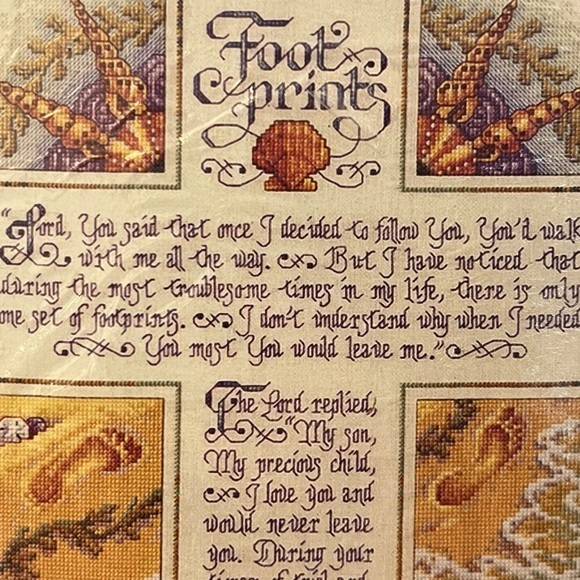 Foot
prints
"Lord, You said that once I decided to follow You, You'd walk
with me all the way. But I have noticed that
during the most troublesome times in my life, there is only
one set of footprints. I don't understand why when I needed
You most You would leave me."
The Lord replied,
"My son,
My precious child,
I love you and
would never leave
you. During your
times of trial and